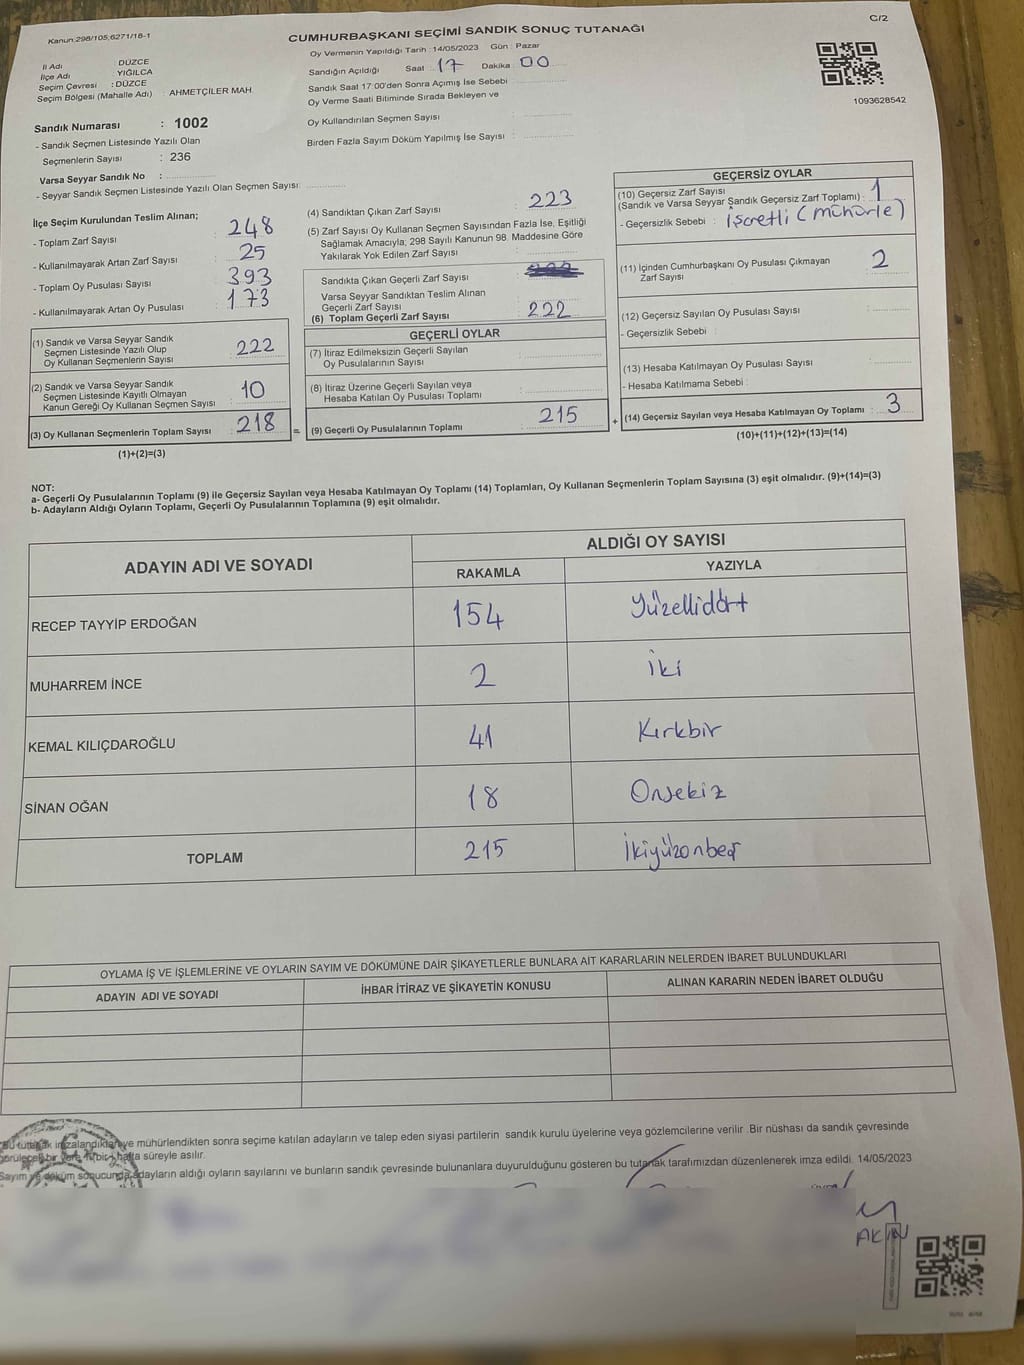 C/2
Kanun:298/105,6271/18-1
CUMHURBAŞKANI SEÇİMİ SANDIK SONUÇ TUTANAĞI
Oy Vermenin Yapıldığı Tarih :14/05/2023 Gün : Pazar
İl Adı : DÜZCE
İlçe Adı : YIĞILCA
Seçim Çevresi : DÜZCE
Seçim Bölgesi (Mahalle Adı) : AHMETÇİLER MAH.
Sandığın Açıldığı Saat : 17 Dakika : 00
Sandık Saat 17:00'den Sonra Açımış İse Sebebi :
Oy Verme Saati Bitiminde Sırada Bekleyen ve
Oy Kullandırılan Seçmen Sayısı :
Birden Fazla Sayım Döküm Yapılmış İse Sayısı :
1093628542
Sandık Numarası : 1002
- Sandık Seçmen Listesinde Yazılı Olan
Seçmenlerin Sayısı : 236
Varsa Seyyar Sandık No :
- Seyyar Sandık Seçmen Listesinde Yazılı Olan Seçmen Sayısı:
İlçe Seçim Kurulundan Teslim Alınan;
- Toplam Zarf Sayısı : 248
- Kullanılmayarak Artan Zarf Sayısı : 25
- Toplam Oy Pusulası Sayısı : 393
- Kullanılmayarak Artan Oy Pusulası : 173
(1) Sandık ve Varsa Seyyar Sandık
Seçmen Listesinde Yazılı Olup
Oy Kullanan Seçmenlerin Sayısı : 222
(2) Sandık ve Varsa Seyyar Sandık
Seçmen Listesinde Kayıtlı Olmayan
Kanun Gereği Oy Kullanan Seçmen Sayısı : 10
(3) Oy Kullanan Seçmenlerin Toplam Sayısı : 218 =
(1)+(2)=(3)
(4) Sandıktan Çıkan Zarf Sayısı : 223
(5) Zarf Sayısı Oy Kullanan Seçmen Sayısından Fazla İse, Eşitliği
Sağlamak Amacıyla, 298 Sayılı Kanunun 98. Maddesine Göre
Yakılarak Yok Edilen Zarf Sayısı :
Sandıkta Çıkan Geçerli Zarf Sayısı :
Varsa Seyyar Sandıktan Teslim Alınan
Geçerli Zarf Sayısı :
(6) Toplam Geçerli Zarf Sayısı : 222
GEÇERLİ OYLAR
(7) İtiraz Edilmeksizin Geçerli Sayılan
Oy Pusulalarının Sayısı :
(8) İtiraz Üzerine Geçerli Sayılan veya
Hesaba Katılan Oy Pusulası Toplamı :
(9) Geçerli Oy Pusulalarının Toplamı : 215 +
GEÇERSİZ OYLAR
(10) Geçersiz Zarf Sayısı
(Sandık ve Varsa Seyyar Sandık Geçersiz Zarf Toplamı) : 1
- Geçersizlik Sebebi : İşcretli (mühürle)
(11) İçinden Cumhurbaşkanı Oy Pusulası Çıkmayan
Zarf Sayısı : 2
(12) Geçersiz Sayılan Oy Pusulası Sayısı :
- Geçersizlik Sebebi :
(13) Hesaba Katılmayan Oy Pusulası Sayısı :
- Hesaba Katılmama Sebebi :
(14) Geçersiz Sayılan veya Hesaba Katılmayan Oy Toplamı : 3
(10)+(11)+(12)+(13)=(14)
NOT:
a- Geçerli Oy Pusulalarının Toplamı (9) ile Geçersiz Sayılan veya Hesaba Katılmayan Oy Toplamı (14) Toplamları, Oy Kullanan Seçmenlerin Toplam Sayısına (3) eşit olmalıdır. (9)+(14)=(3)
b- Adayların Aldığı Oyların Toplamı, Geçerli Oy Pusulalarının Toplamına (9) eşit olmalıdır.
ADAYIN ADI VE SOYADI ALDIĞI OY SAYISI
RAKAMLA YAZIYLA
RECEP TAYYİP ERDOĞAN 154 Yüzellidört
MUHARREM İNCE 2 İki
KEMAL KILIÇDAROĞLU 41 Kırkbir
SİNAN OĞAN 18 Onsekiz
TOPLAM 215 İkiyüzonbeş
OYLAMA İŞ VE İŞLEMLERİNE VE OYLARIN SAYIM VE DÖKÜMÜNE DAİR ŞİKAYETLERLE BUNLARA AİT KARARLARIN NELERDEN İBARET BULUNDUKLARI
ADAYIN ADI VE SOYADI İHBAR İTİRAZ VE ŞİKAYETİN KONUSU ALINAN KARARIN NEDEN İBARET OLDUĞU
Bu tutanak imzalandıktan ve mühürlendikten sonra seçime katılan adayların ve talep eden siyasi partilerin sandık kurulu üyelerine veya gözlemcilerine verilir .Bir nüshası da sandık çevresinde
görülecek bir yere 1(bir) hafta süreyle asılır.
Sayım ve döküm sonucunda adayların aldığı oyların sayılarını ve bunların sandık çevresinde bulunanlara duyurulduğunu gösteren bu tutanak tarafımızdan düzenlenerek imza edildi. 14/05/2023
AKIN